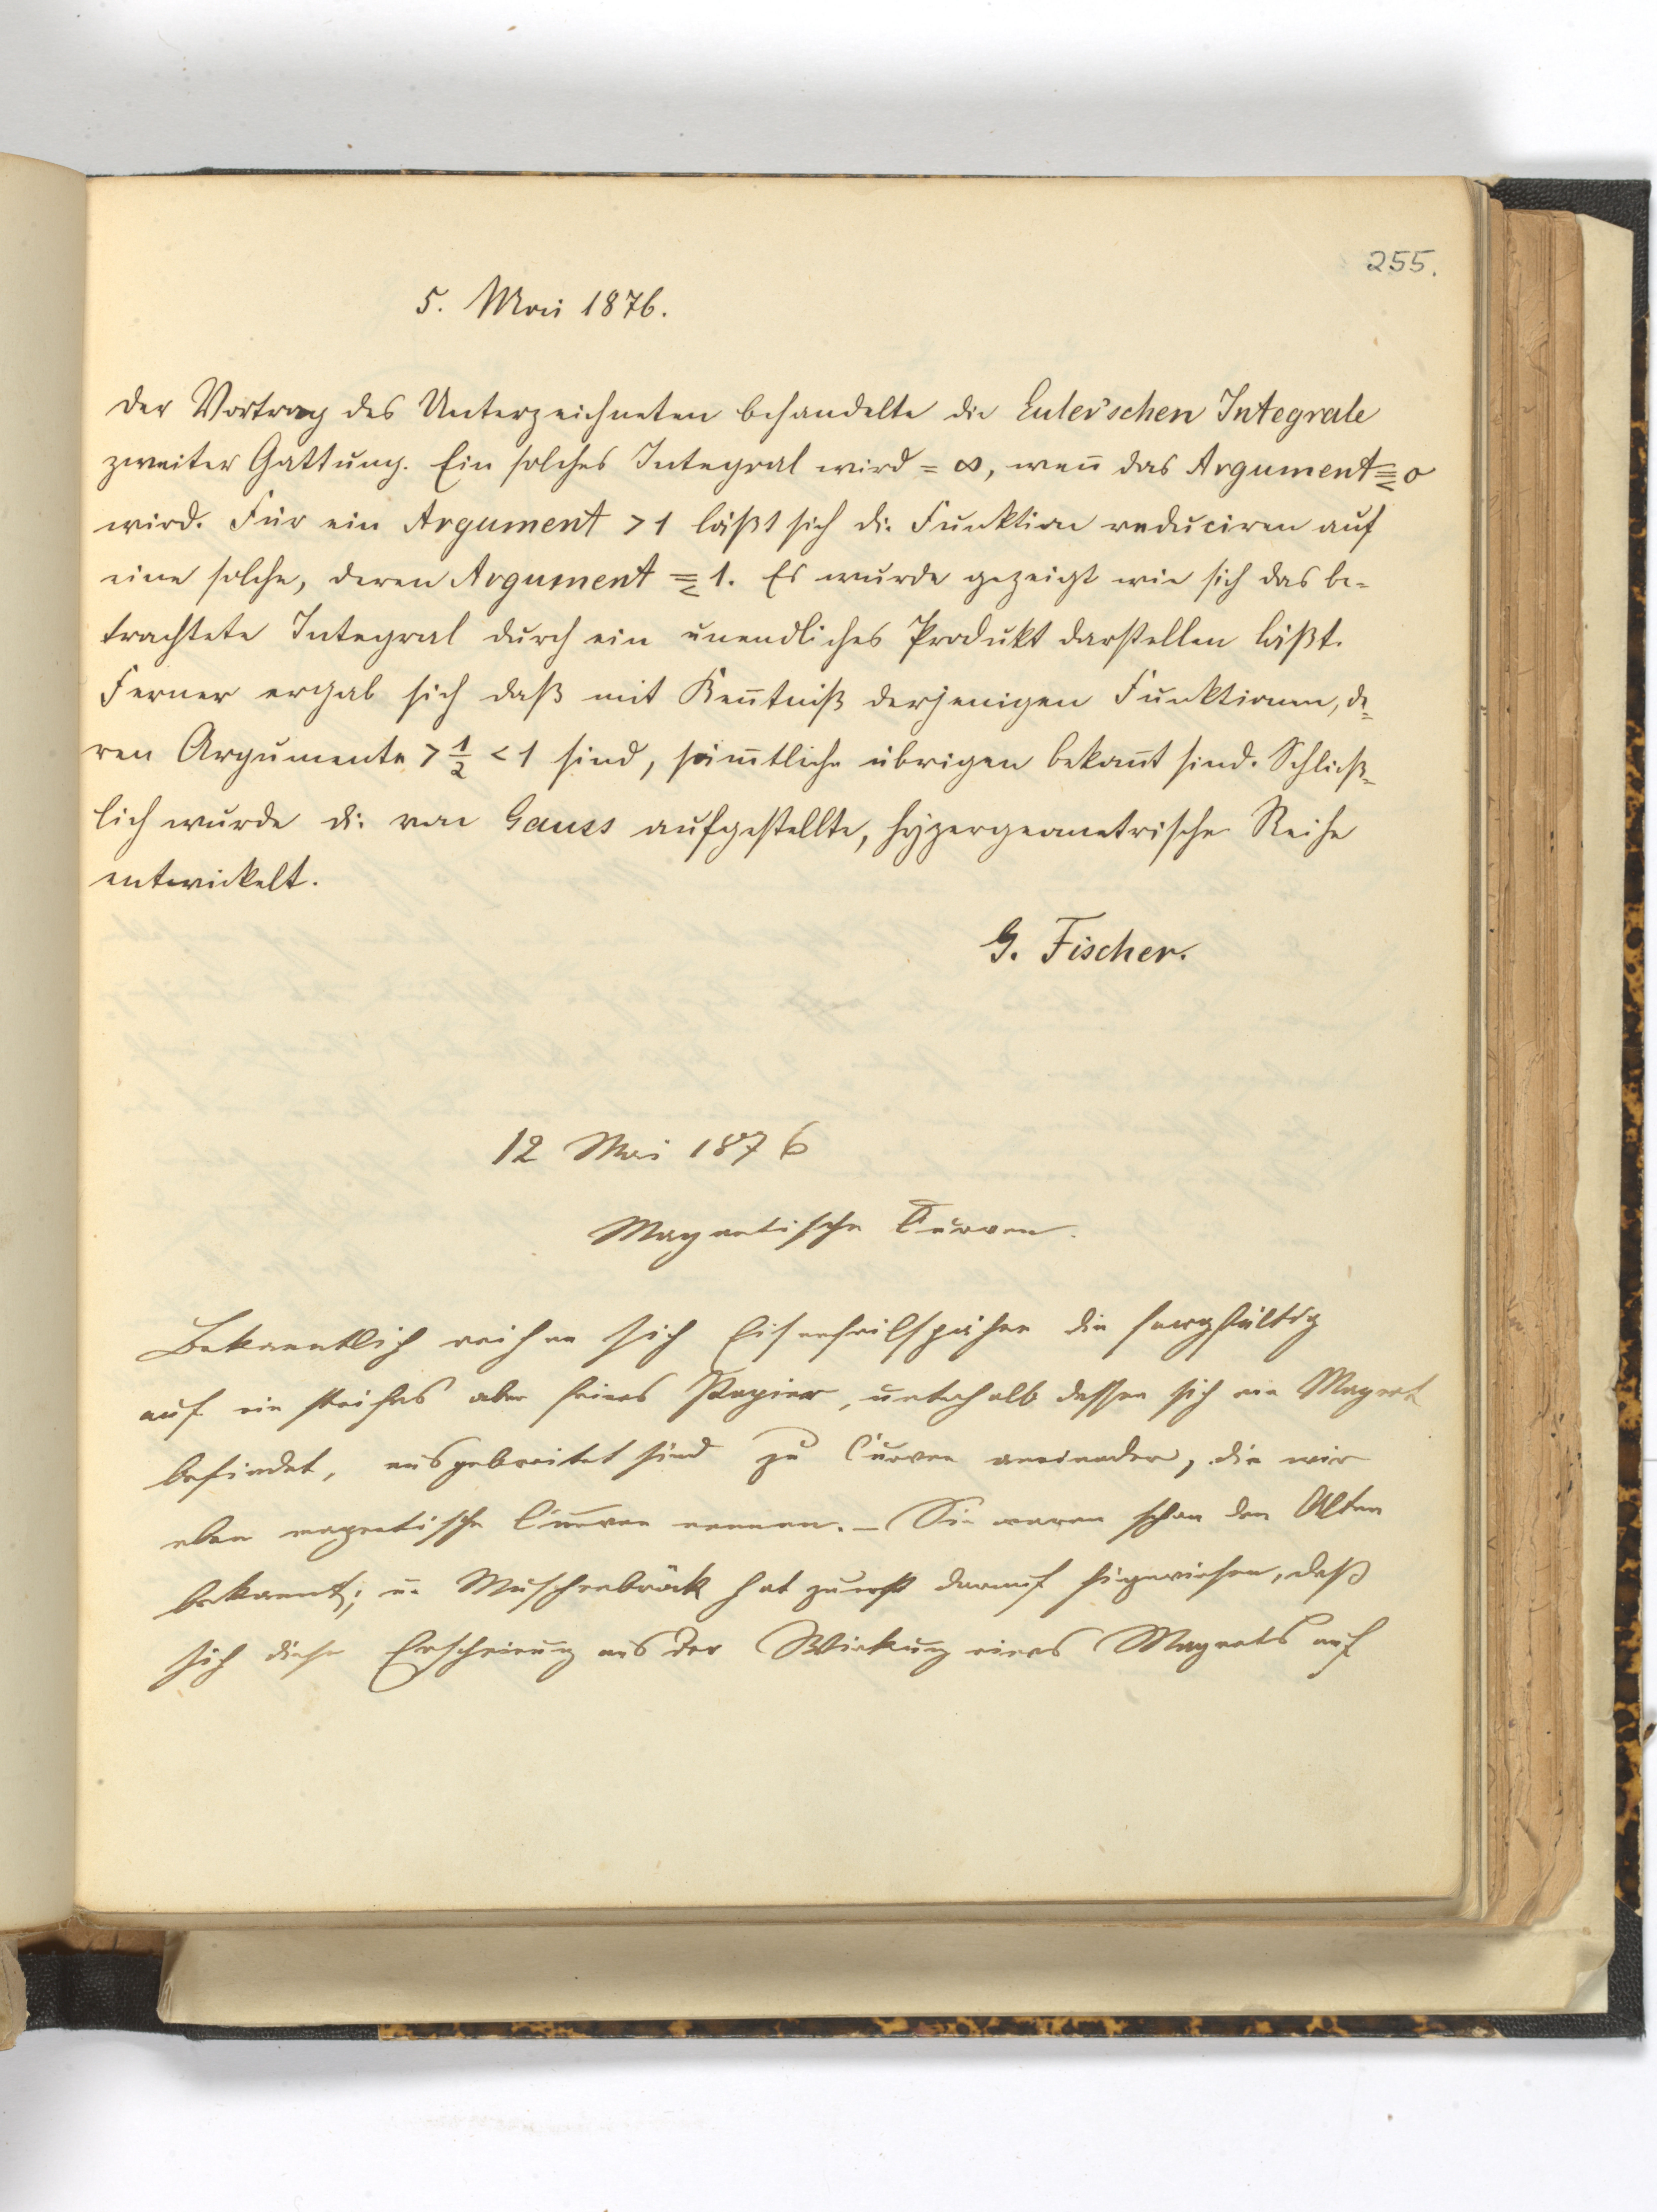 255.
5. Mai 1876.
Der Vortrag des Unterzeichneten behandelte die Euler'schen Integrale
zweiter Gattung. Ein solches Integral wird = ∞, weñ das Argument ≦ 0
wird. Für ein Argument > 1 läßt sich die Funktion reduciren auf
eine solche, deren Argument ≦ 1. Es wurde gezeigt wie sich das be-
trachtete Integral durch ein unendliches Produkt darstellen läßt.
Ferner ergab sich daß mit Keñtniß derjenigen Funktionen, de-
ren Argumente > 1/2 < 1 sind, säm̄tliche übrigen bekañt sind. Schließ-
lich wurde die von Gauss aufgestellte, hypergeometrische Reihe
entwickelt.
G. Fischer.
12 Mai 1876
Magnetische Curven.
Bekanntlich reihen sich Eisenfeilspähne die sorgfältig
auf ein steifes aber feines Papier, unterhalb dessen sich ein Magnet
befindet, ausgebreitet sind zu Curven aneinander, die wir
eben magnetische Curven nennen. – Sie waren schon den Alten
bekannt; u. Muschenbröck hat zuerst darauf hingewiesen, daß
sich diese Erscheinung aus der Wirkung eines Magnets auf